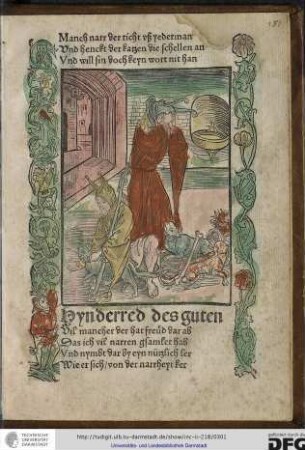 Manch narr der richt vß yederman
Vnd henckt der katzen die schellen an
Vnd will sin doch keyn wort nit han
Hynderred des guten
Vil mancher der hat freüd dar ab
Das ich vil narren gsamlet hab
Vnd nymbt dar by eyn nützlich ler
Wie er sich/von der narrheyt ker
http://tudigit.ulb.tu-darmstadt.de/show/inc-ii-218/0301
Universitäts- und Landesbibliothek Darmstadt
TECHNISCHE
UNIVERSITÄT
DARMSTADT
gefördert durch die
DFG